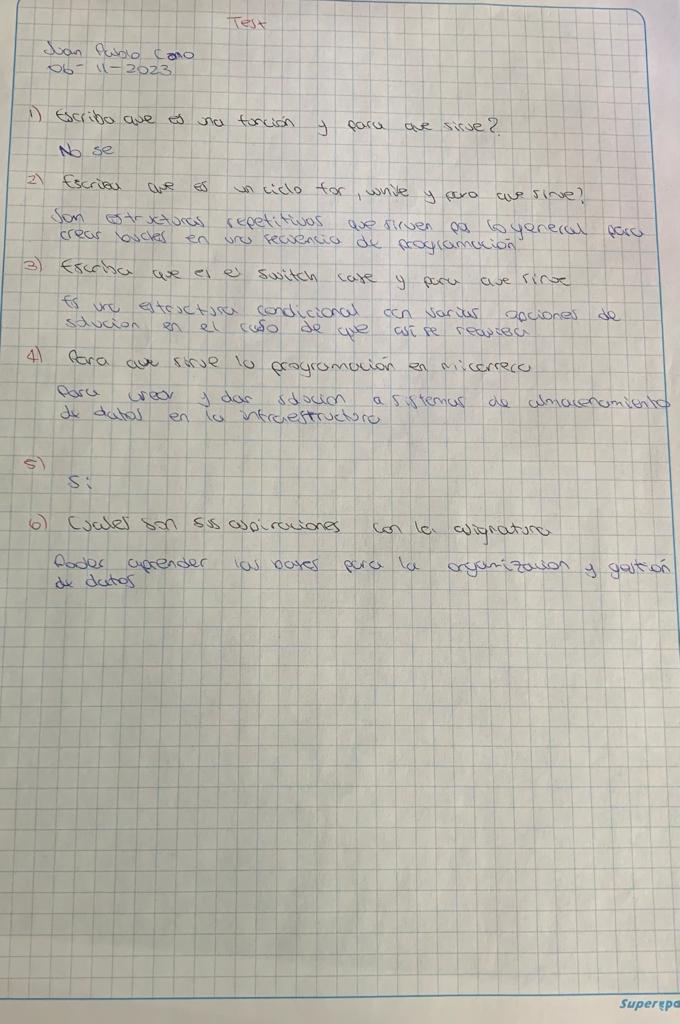 Test
Juan Pablo Cano
06-11-2023
1) Escriba que es una función y para que sirve?
No se
2) Escriba que es un ciclo for, while y para que sirve?
Son estructuras repetitivos que sirven pa lo general para
crear bucles en una secuencia de programación
3) Escriba que es el switch case y para que sirve
Es una estructura condicional con varias opciones de
solucion en el caso de que así se requiera
4) Para que sirve la programación en mi carrera
Para crear y dar solucion a sistemas de almacenamiento
de datos en la infraestructura
5)
Si
6) Cuales son sus aspiraciones con la asignatura
Poder aprender las bases para la organizacion y gestión
de datos
Super